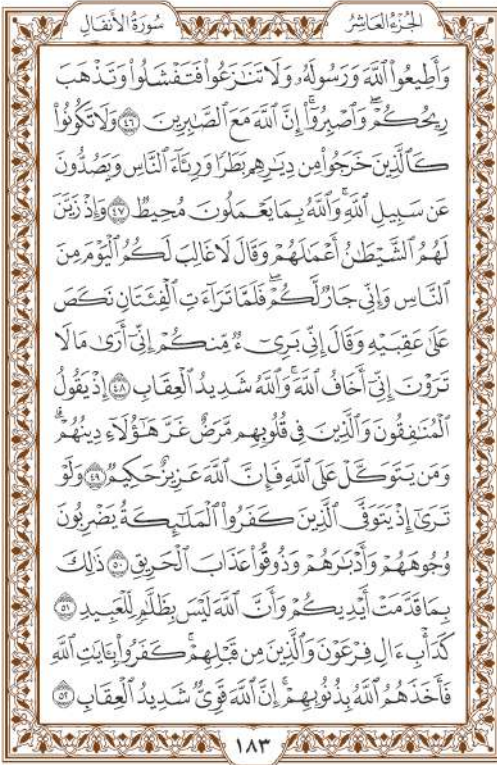 الجُزْءُ العَاشِرُ
سُورَةُ الأَنفَالِ
وَأَطِيعُوا۟ ٱللَّهَ وَرَسُولَهُۥ وَلَا تَنَـٰزَعُوا۟ فَتَفْشَلُوا۟ وَتَذْهَبَ
رِيحُكُمْ ۖ وَٱصْبِرُوٓا۟ ۚ إِنَّ ٱللَّهَ مَعَ ٱلصَّـٰبِرِينَ ٤٦ وَلَا تَكُونُوا۟
كَٱلَّذِينَ خَرَجُوا۟ مِن دِيَـٰرِهِم بَطَرًا وَرِئَآءَ ٱلنَّاسِ وَيَصُدُّونَ
عَن سَبِيلِ ٱللَّهِ ۚ وَٱللَّهُ بِمَا يَعْمَلُونَ مُحِيطٌ ٤٧ وَإِذْ زَيَّنَ
لَهُمُ ٱلشَّيْطَـٰنُ أَعْمَـٰلَهُمْ وَقَالَ لَا غَالِبَ لَكُمُ ٱلْيَوْمَ مِنَ
ٱلنَّاسِ وَإِنِّى جَارٌ لَّكُمْ ۖ فَلَمَّا تَرَآءَتِ ٱلْفِئَتَانِ نَكَصَ
عَلَىٰ عَقِبَيْهِ وَقَالَ إِنِّى بَرِىٓءٌ مِّنكُمْ إِنِّىٓ أَرَىٰ مَا لَا
تَرَوْنَ إِنِّىٓ أَخَافُ ٱللَّهَ ۚ وَٱللَّهُ شَدِيدُ ٱلْعِقَابِ ٤٨ إِذْ يَقُولُ
ٱلْمُنَـٰفِقُونَ وَٱلَّذِينَ فِى قُلُوبِهِم مَّرَضٌ غَرَّ هَـٰٓؤُلَآءِ دِينُهُمْ ۗ
وَمَن يَتَوَكَّلْ عَلَى ٱللَّهِ فَإِنَّ ٱللَّهَ عَزِيزٌ حَكِيمٌ ٤٩ وَلَوْ
تَرَىٰٓ إِذْ يَتَوَفَّى ٱلَّذِينَ كَفَرُوا۟ ٱلْمَلَـٰٓئِكَةُ يَضْرِبُونَ
وُجُوهَهُمْ وَأَدْبَـٰرَهُمْ وَذُوقُوا۟ عَذَابَ ٱلْحَرِيقِ ٥٠ ذَٰلِكَ
بِمَا قَدَّمَتْ أَيْدِيكُمْ وَأَنَّ ٱللَّهَ لَيْسَ بِظَلَّـٰمٍ لِّلْعَبِيدِ ٥١
كَدَأْبِ ءَالِ فِرْعَوْنَ وَٱلَّذِينَ مِن قَبْلِهِمْ ۚ كَفَرُوا۟ بِـَٔايَـٰتِ ٱللَّهِ
فَأَخَذَهُمُ ٱللَّهُ بِذُنُوبِهِمْ ۗ إِنَّ ٱللَّهَ قَوِىٌّ شَدِيدُ ٱلْعِقَابِ ٥٢
١٨٣